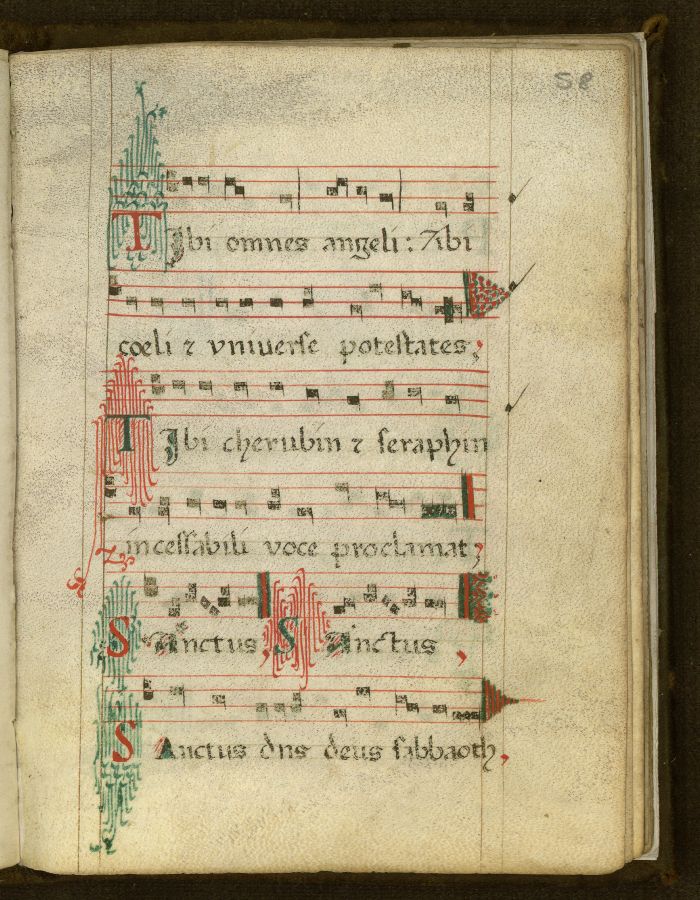 58
TIbi omnes angeli: Tibi
cœli ⁊ vniuerſe poteſtates;
TIbi cherubin ⁊ ſeraphin
inceſſabili voce proclamat;
SAnctus, SAnctus,
SAnctus dñs deus ſabbaoth,